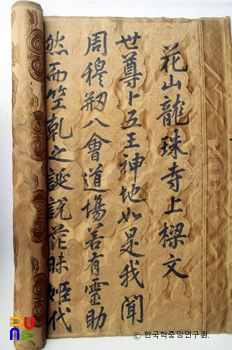 花山龍珠寺上樑文
世尊卜五王神地如是我聞
周穆剏八會道場若有靈助
然而竺乾之誕說茫昧姬代
ⓒ 한국학중앙연구원.